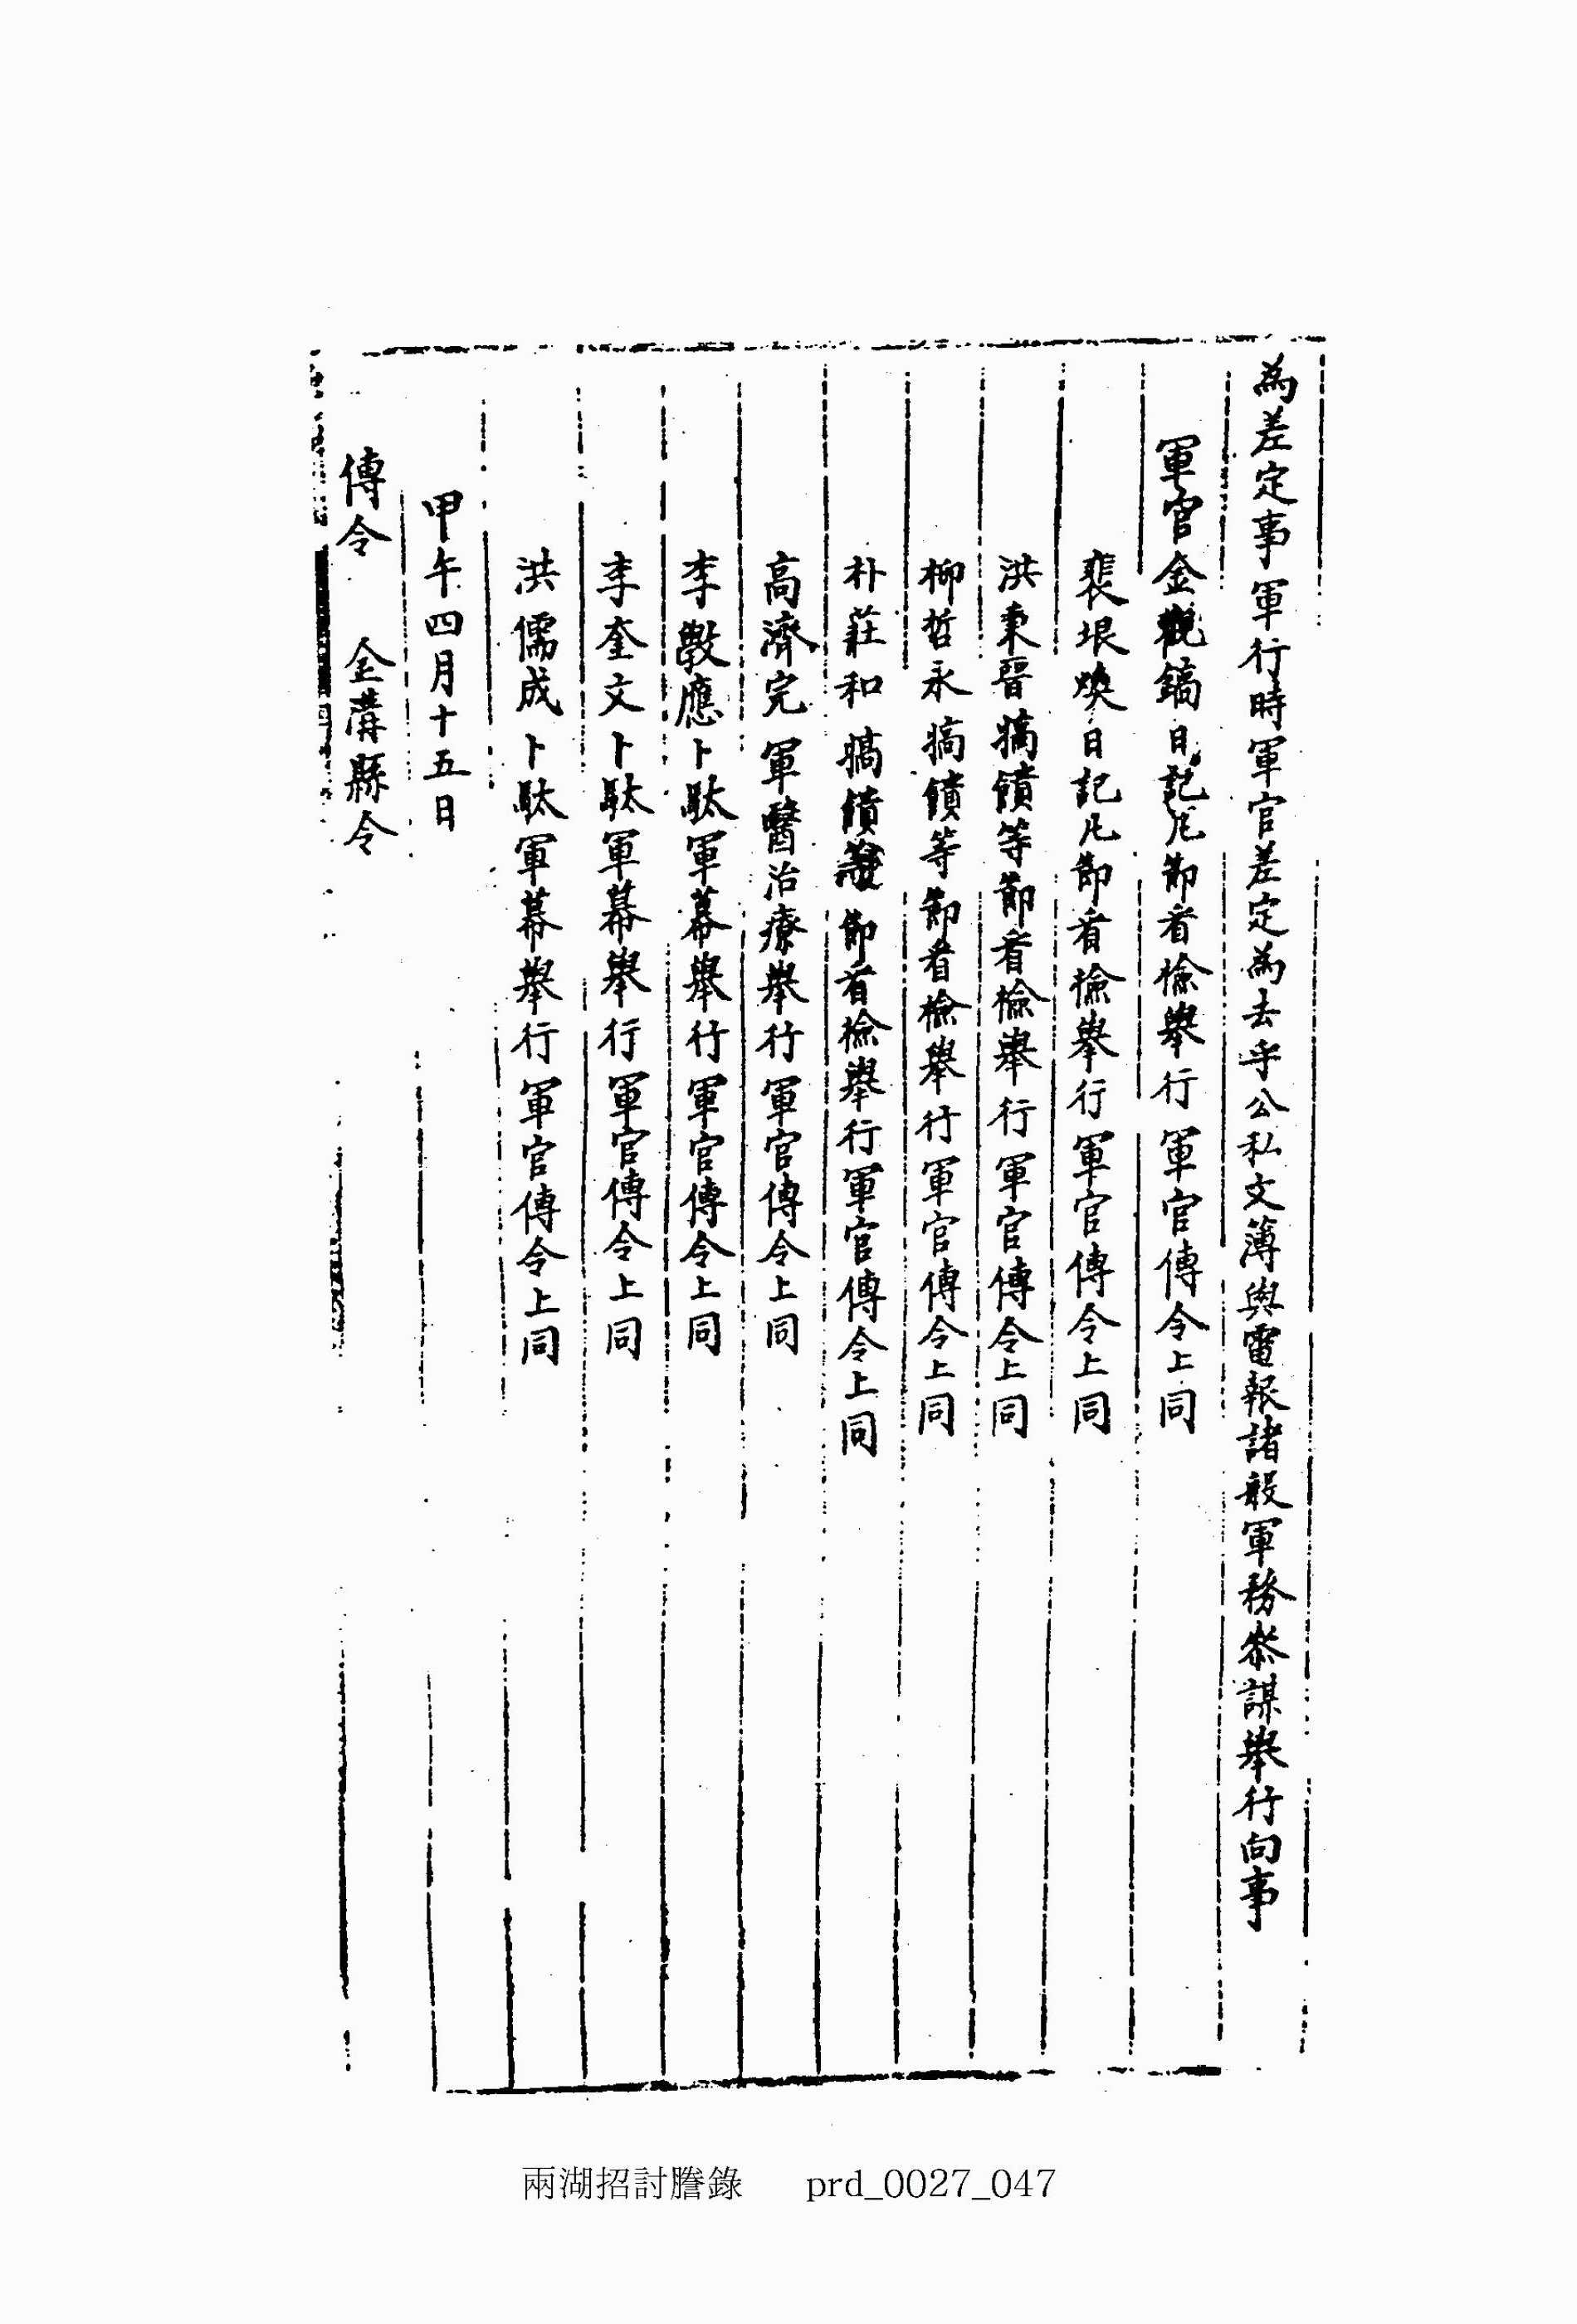 為差定事軍行時軍官差定為去乎公私文薄與電報諸般軍務叅謀擧行向事
軍官金觀鎬日記凡節看檢擧行軍官傳令上同
裴垠煥日記凡節看檢擧行軍官傳令上同
洪秉晉犒饋等節看檢擧行軍官傳令上同
柳哲永犒饋等節看檢擧行軍官傳令上同
朴莊和犒饋等節看檢擧行軍官傳令上同
高濟完軍醫治療擧行軍官傳令上同
李斅應卜䭾軍幕擧行軍官傳令上同
李奎文卜䭾軍幕擧行軍官傳令上同
洪儒成卜䭾軍幕擧行軍官傳令上同
甲午四月十五日
傳令 金溝縣令
兩湖招討謄錄 prd_0027_047